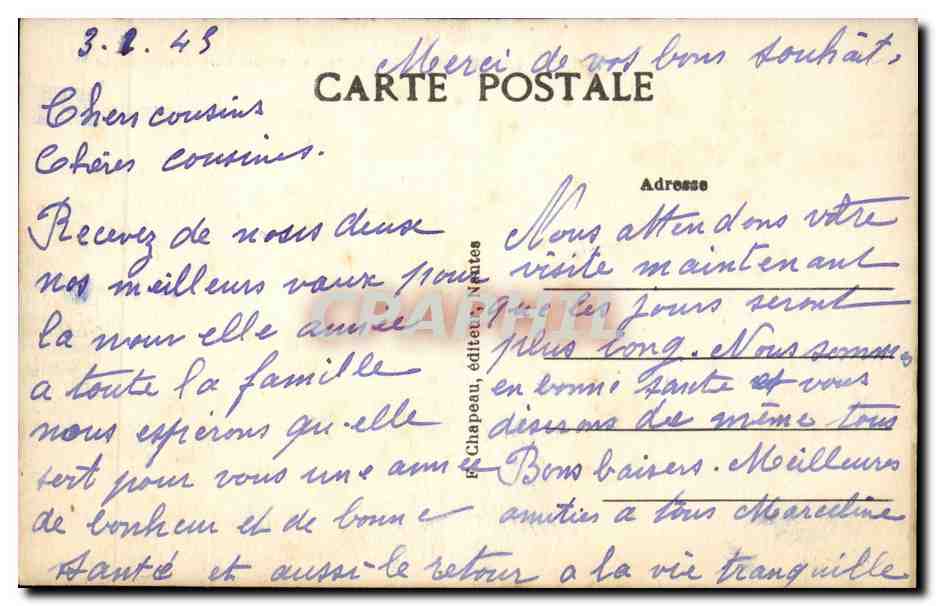 3.1.45
Merci de vos bons souhât.
CARTE POSTALE
Chers cousins
Chères cousines.
Recevez de nous deux
nos meilleurs vœux pour
la nouvelle année
a toute la famille
nous espérons qu'elle
sert pour vous une année
de bonheur et de bonne
santé et aussi le retour a la vie tranquille
F. Chapeau, éditeur, Nantes
Adresse
Nous attendons vôtre
visite maintenant
que les jours seront
plus long. Nous sommes
en bonne santé et vous
désirons de même tous
Bons baisers. Meilleures
amitiés a tous Marceline
CRAPHIL